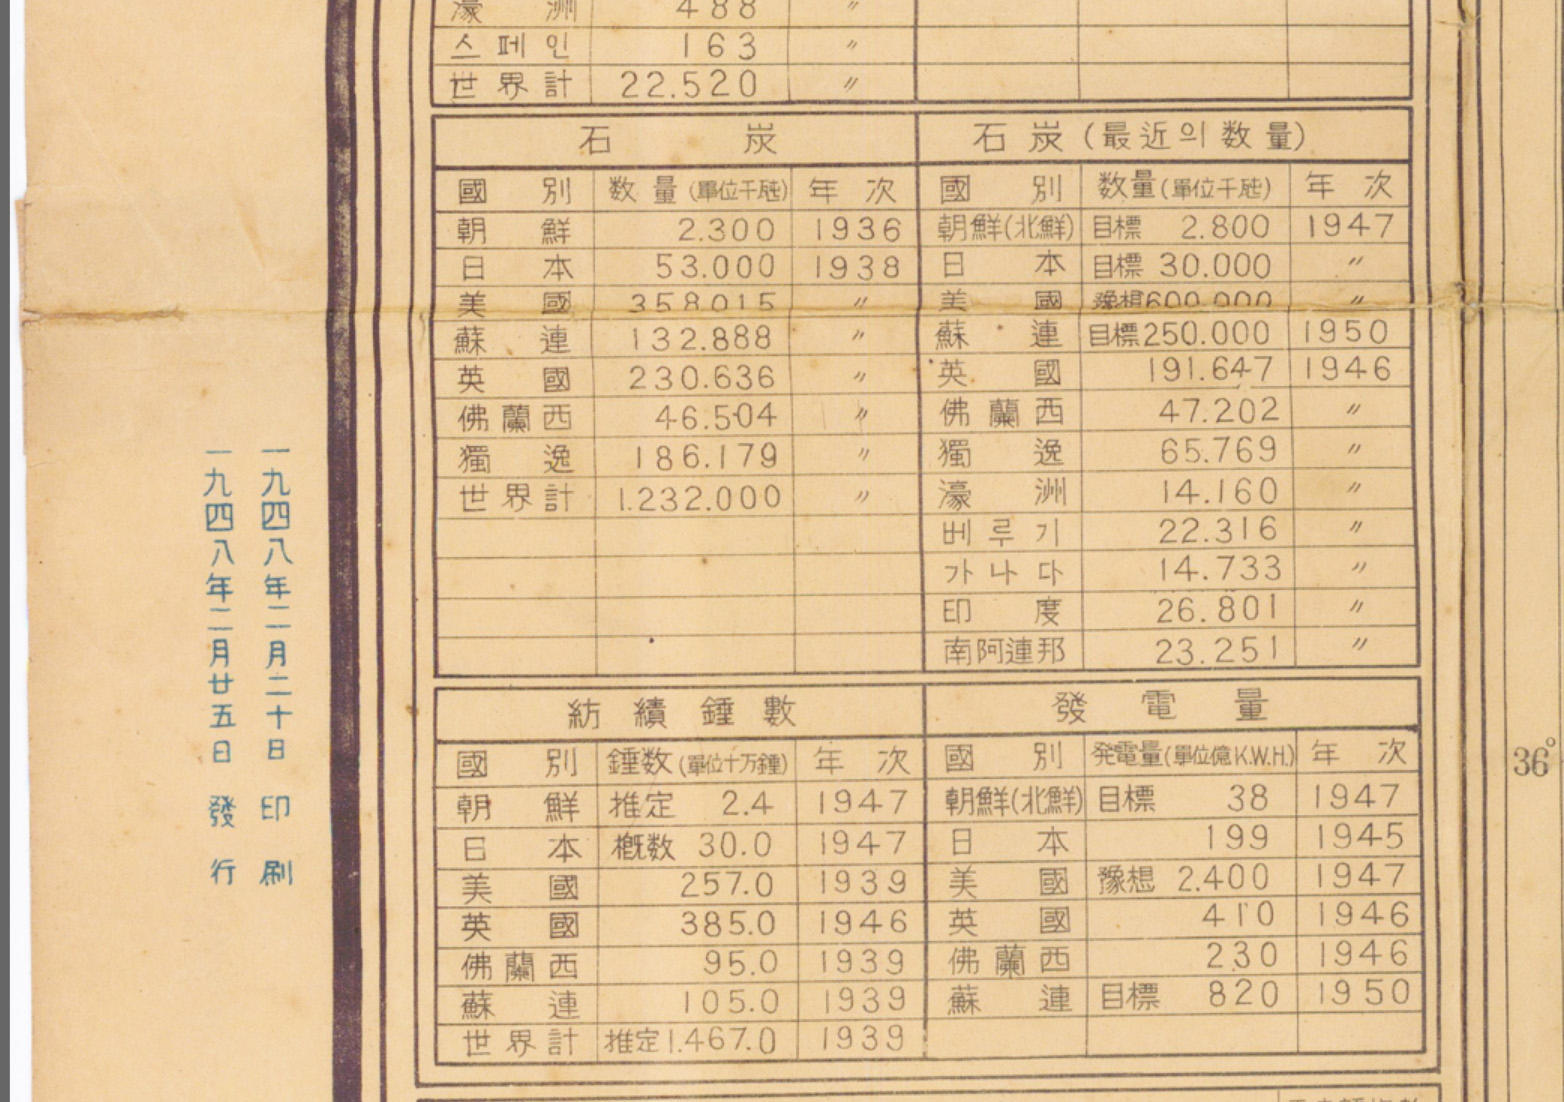 濠洲 488 〃
스페인 163 〃
世界計 22.520 〃
石炭
國別 数量(單位千瓲) 年次
朝鮮 2.300 1936
日本 53.000 1938
美國 358.015 〃
蘇連 132.888 〃
英國 230.636 〃
佛蘭西 46.504 〃
獨逸 186.179 〃
世界計 1.232.000 〃
石炭(最近의数量)
國別 数量(單位千瓲) 年次
朝鮮(北鮮) 目標 2.800 1947
日本 目標 30.000 〃
美國 豫想 600.000 〃
蘇連 目標 250.000 1950
英國 191.647 1946
佛蘭西 47.202 〃
獨逸 65.769 〃
濠洲 14.160 〃
베루기 22.316 〃
가나다 14.733 〃
印度 26.801 〃
南阿連邦 23.251 〃
紡績錘數
國別 錘数(單位十万錘) 年次
朝鮮 推定 2.4 1947
日本 概数 30.0 1947
美國 257.0 1939
英國 385.0 1946
佛蘭西 95.0 1939
蘇連 105.0 1939
世界計 推定 1.467.0 1939
發電量
國別 発電量(單位億K.W.H.) 年次
朝鮮(北鮮) 目標 38 1947
日本 199 1945
美國 豫想 2.400 1947
英國 410 1946
佛蘭西 230 1946
蘇連 目標 820 1950
一九四八年二月二十日 印刷
一九四八年二月廿五日 發行
36°